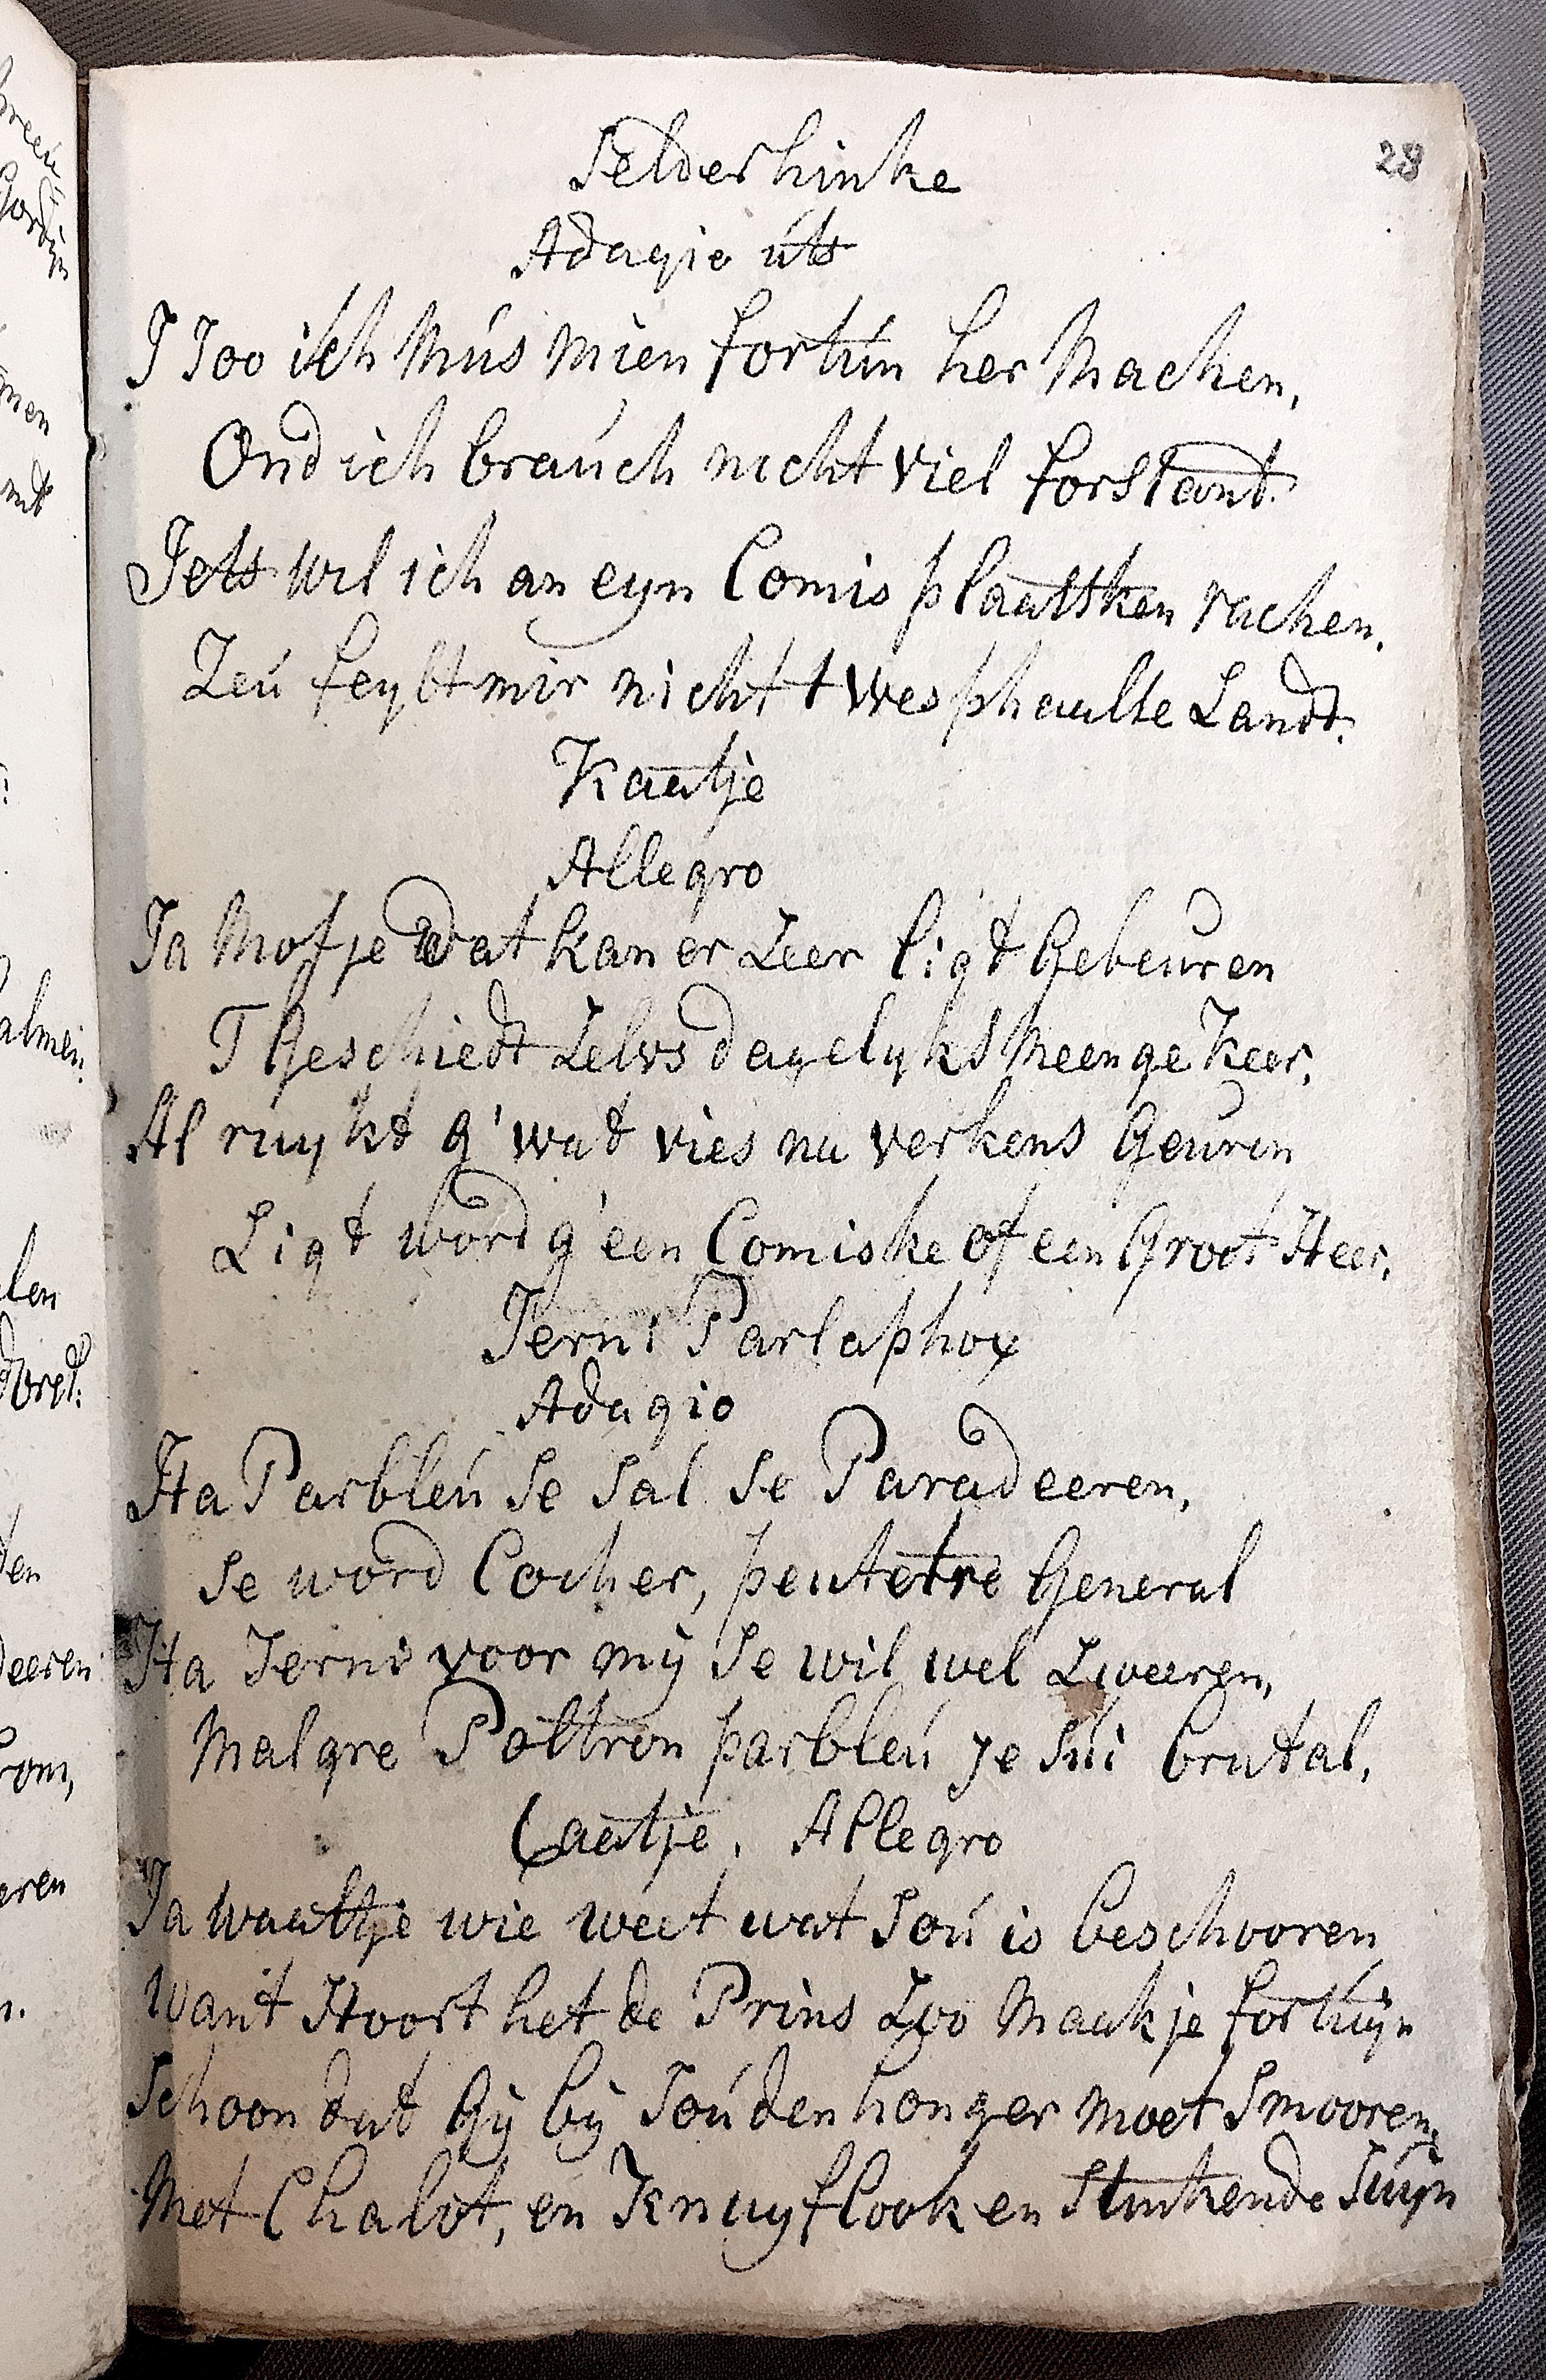 28
Selderhinke
Adagio uts
J Joo ich Mús mien fortún her Machen,
Ond ich braúch nicht viel forstant.
Jets wil ich an eyn Comis plaattken rachen.
Zeú feylt mir nicht t wesphaalse Landt.
Kaatje
Allegro
Ja Mofje dat kan er Zeer ligt Gebeuren
T Geschiedt Zelvs dagelyks Meenge Keer,
Al ruykt g' wat vies na verkens Geuren
Ligt word g'een Comiske of een Groot Heer,
Jerni Parlaphox
Adagio
Ha Parbleú Se Sal Se Paradeeren,
Se word Cocher, peutetre General
Ha Jerni voor mij Se wil wel Zweeren,
Malgre Poltron parbleú je Súi brutal,
Caatje. Allegro
Ja Waaltje wie weet wat Joú is beschooren
Want Hoort het de Prins Zoo Maakje fortúyn
Schoon dat Gij bij Joú den honger moet Smooren,
Met Chalot, en Knuyflook en Stinkende Juyn